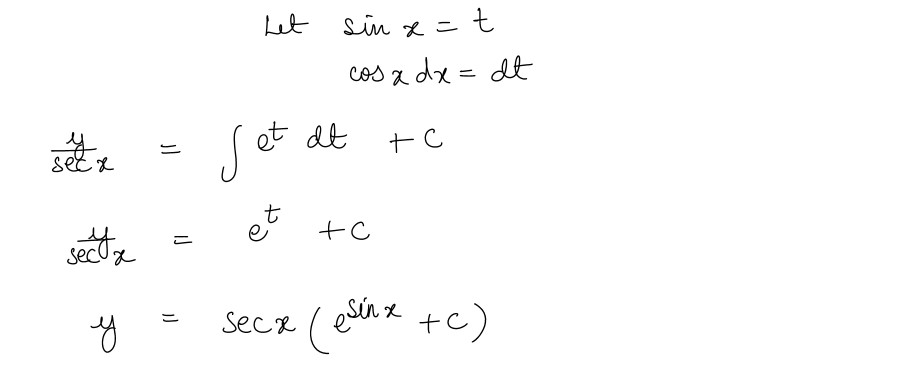 Let sin x = t
cos x dx = dt
y/sec x = ∫ e^t dt + c
y/sec x = e^t + c
y = sec x (e^sin x + c)